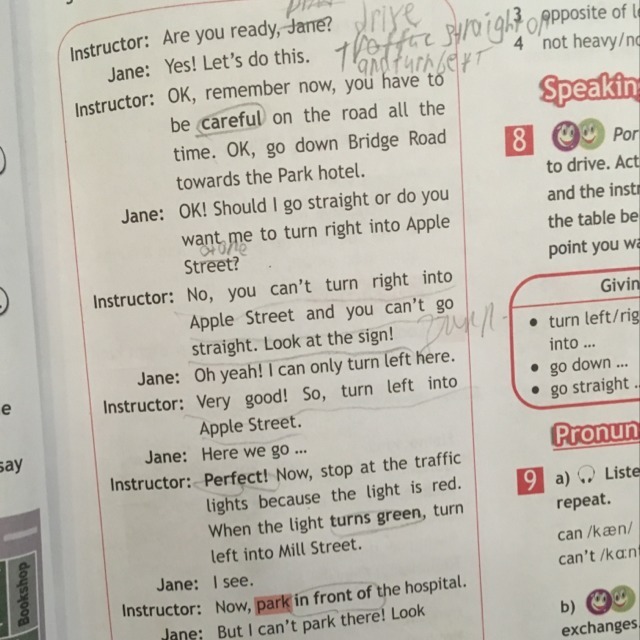 Instructor: Are you ready, Jane?
Jane: Yes! Let's do this.
Instructor: OK, remember now, you have to
be careful on the road all the
time. OK, go down Bridge Road
towards the Park hotel.
Jane: OK! Should I go straight or do you
want me to turn right into Apple
Street?
Instructor: No, you can't turn right into
Apple Street and you can't go
straight. Look at the sign!
Jane: Oh yeah! I can only turn left here.
Instructor: Very good! So, turn left into
Apple Street.
Jane: Here we go ...
Instructor: Perfect! Now, stop at the traffic
lights because the light is red.
When the light turns green, turn
left into Mill Street.
Jane: I see.
Instructor: Now, park in front of the hospital.
Jane: But I can't park there! Look
drive
traffic straight
and turn
3 opposite of
4 not heavy/
Speakin
8 Por
to drive. Act
and the inst
the table be
point you wa
Givin
• turn left/rig
into ...
• go down ...
• go straight ..
Pronun
9 a) Liste
repeat.
can /kæn/
can't /kɑːn
b)
exchanges
e
say
Bookshop